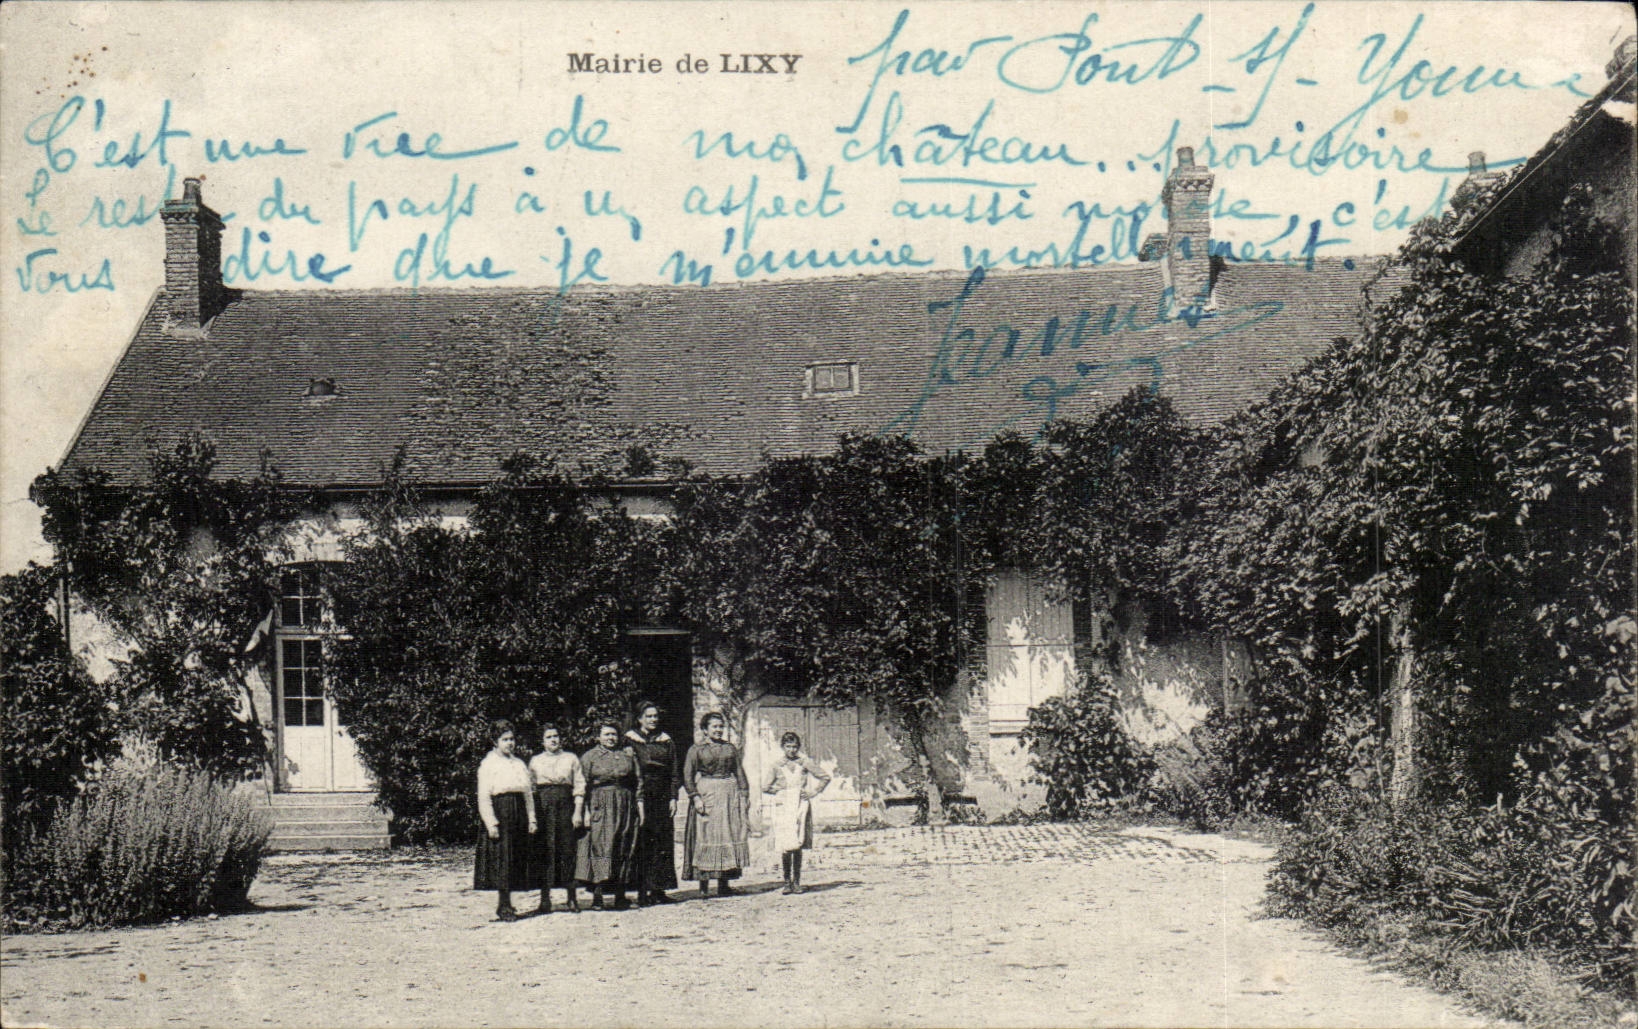 Mairie de LIXY par Pont-s/-Yonne
C'est une vue de mon château... provisoire
Le reste du pays à un aspect aussi morose, c'est
vous dire que je m'ennuie mortellement.